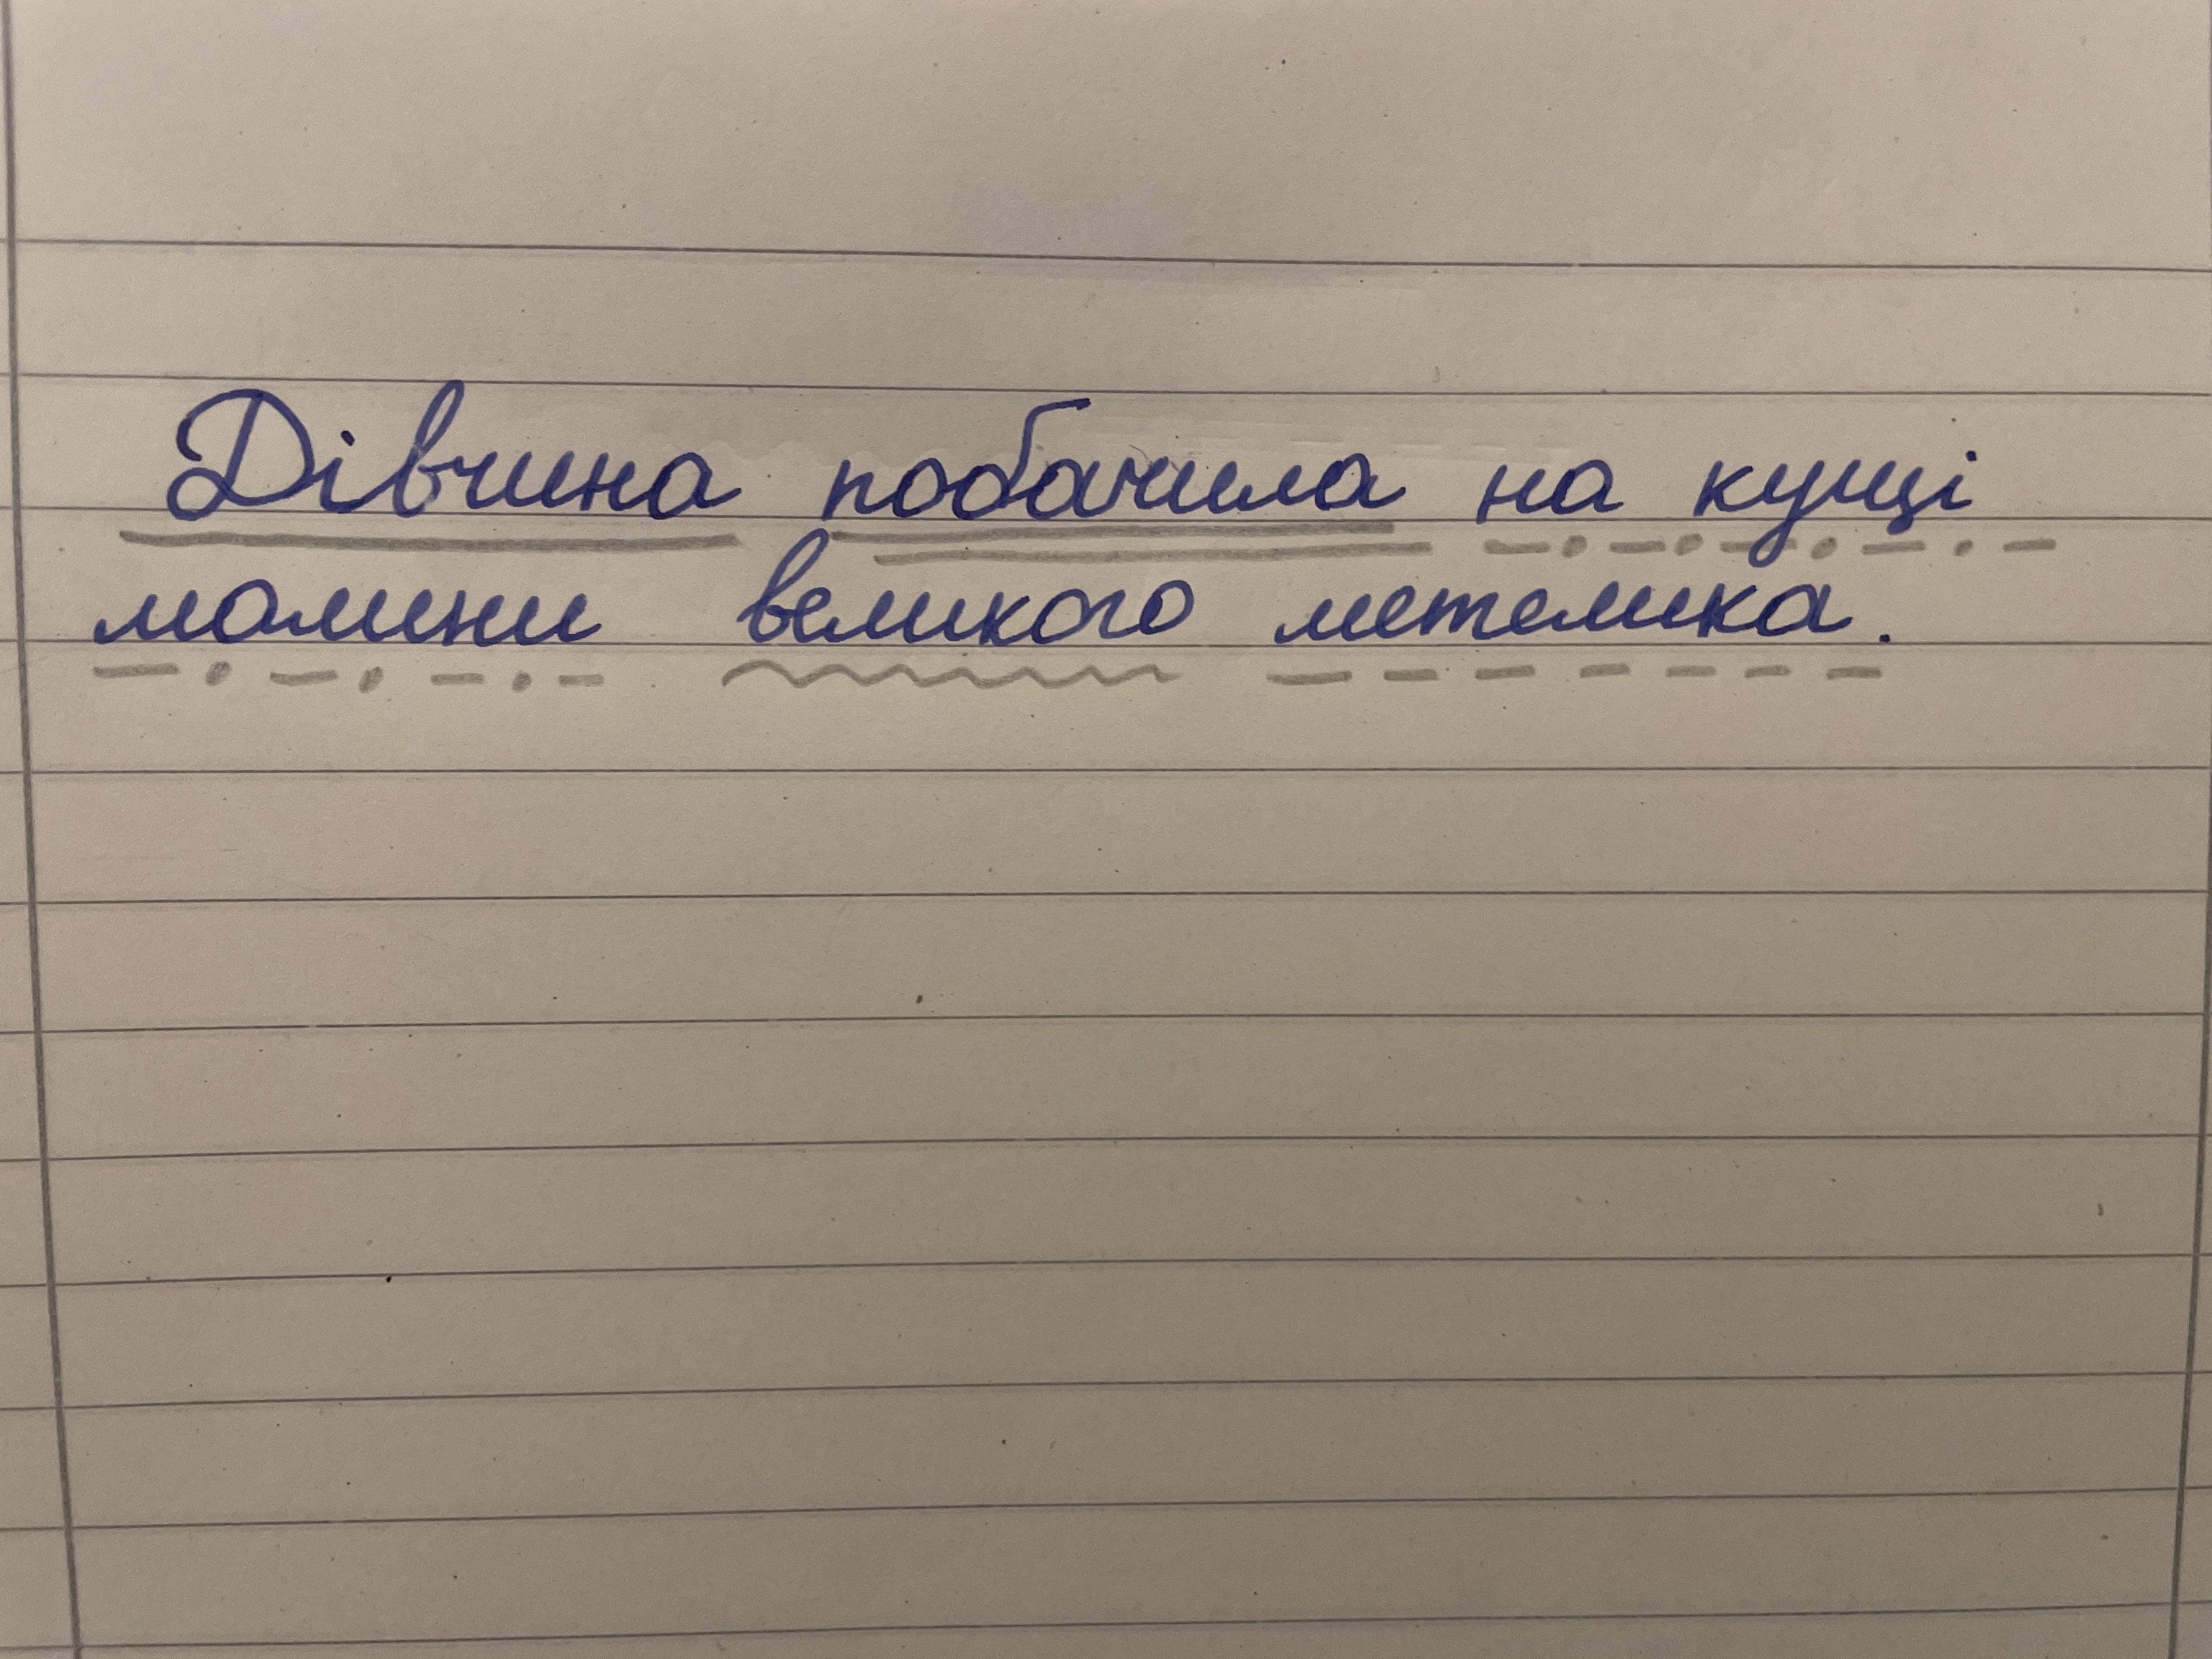 Дівчина побачила на кущі
малини великого метелика.